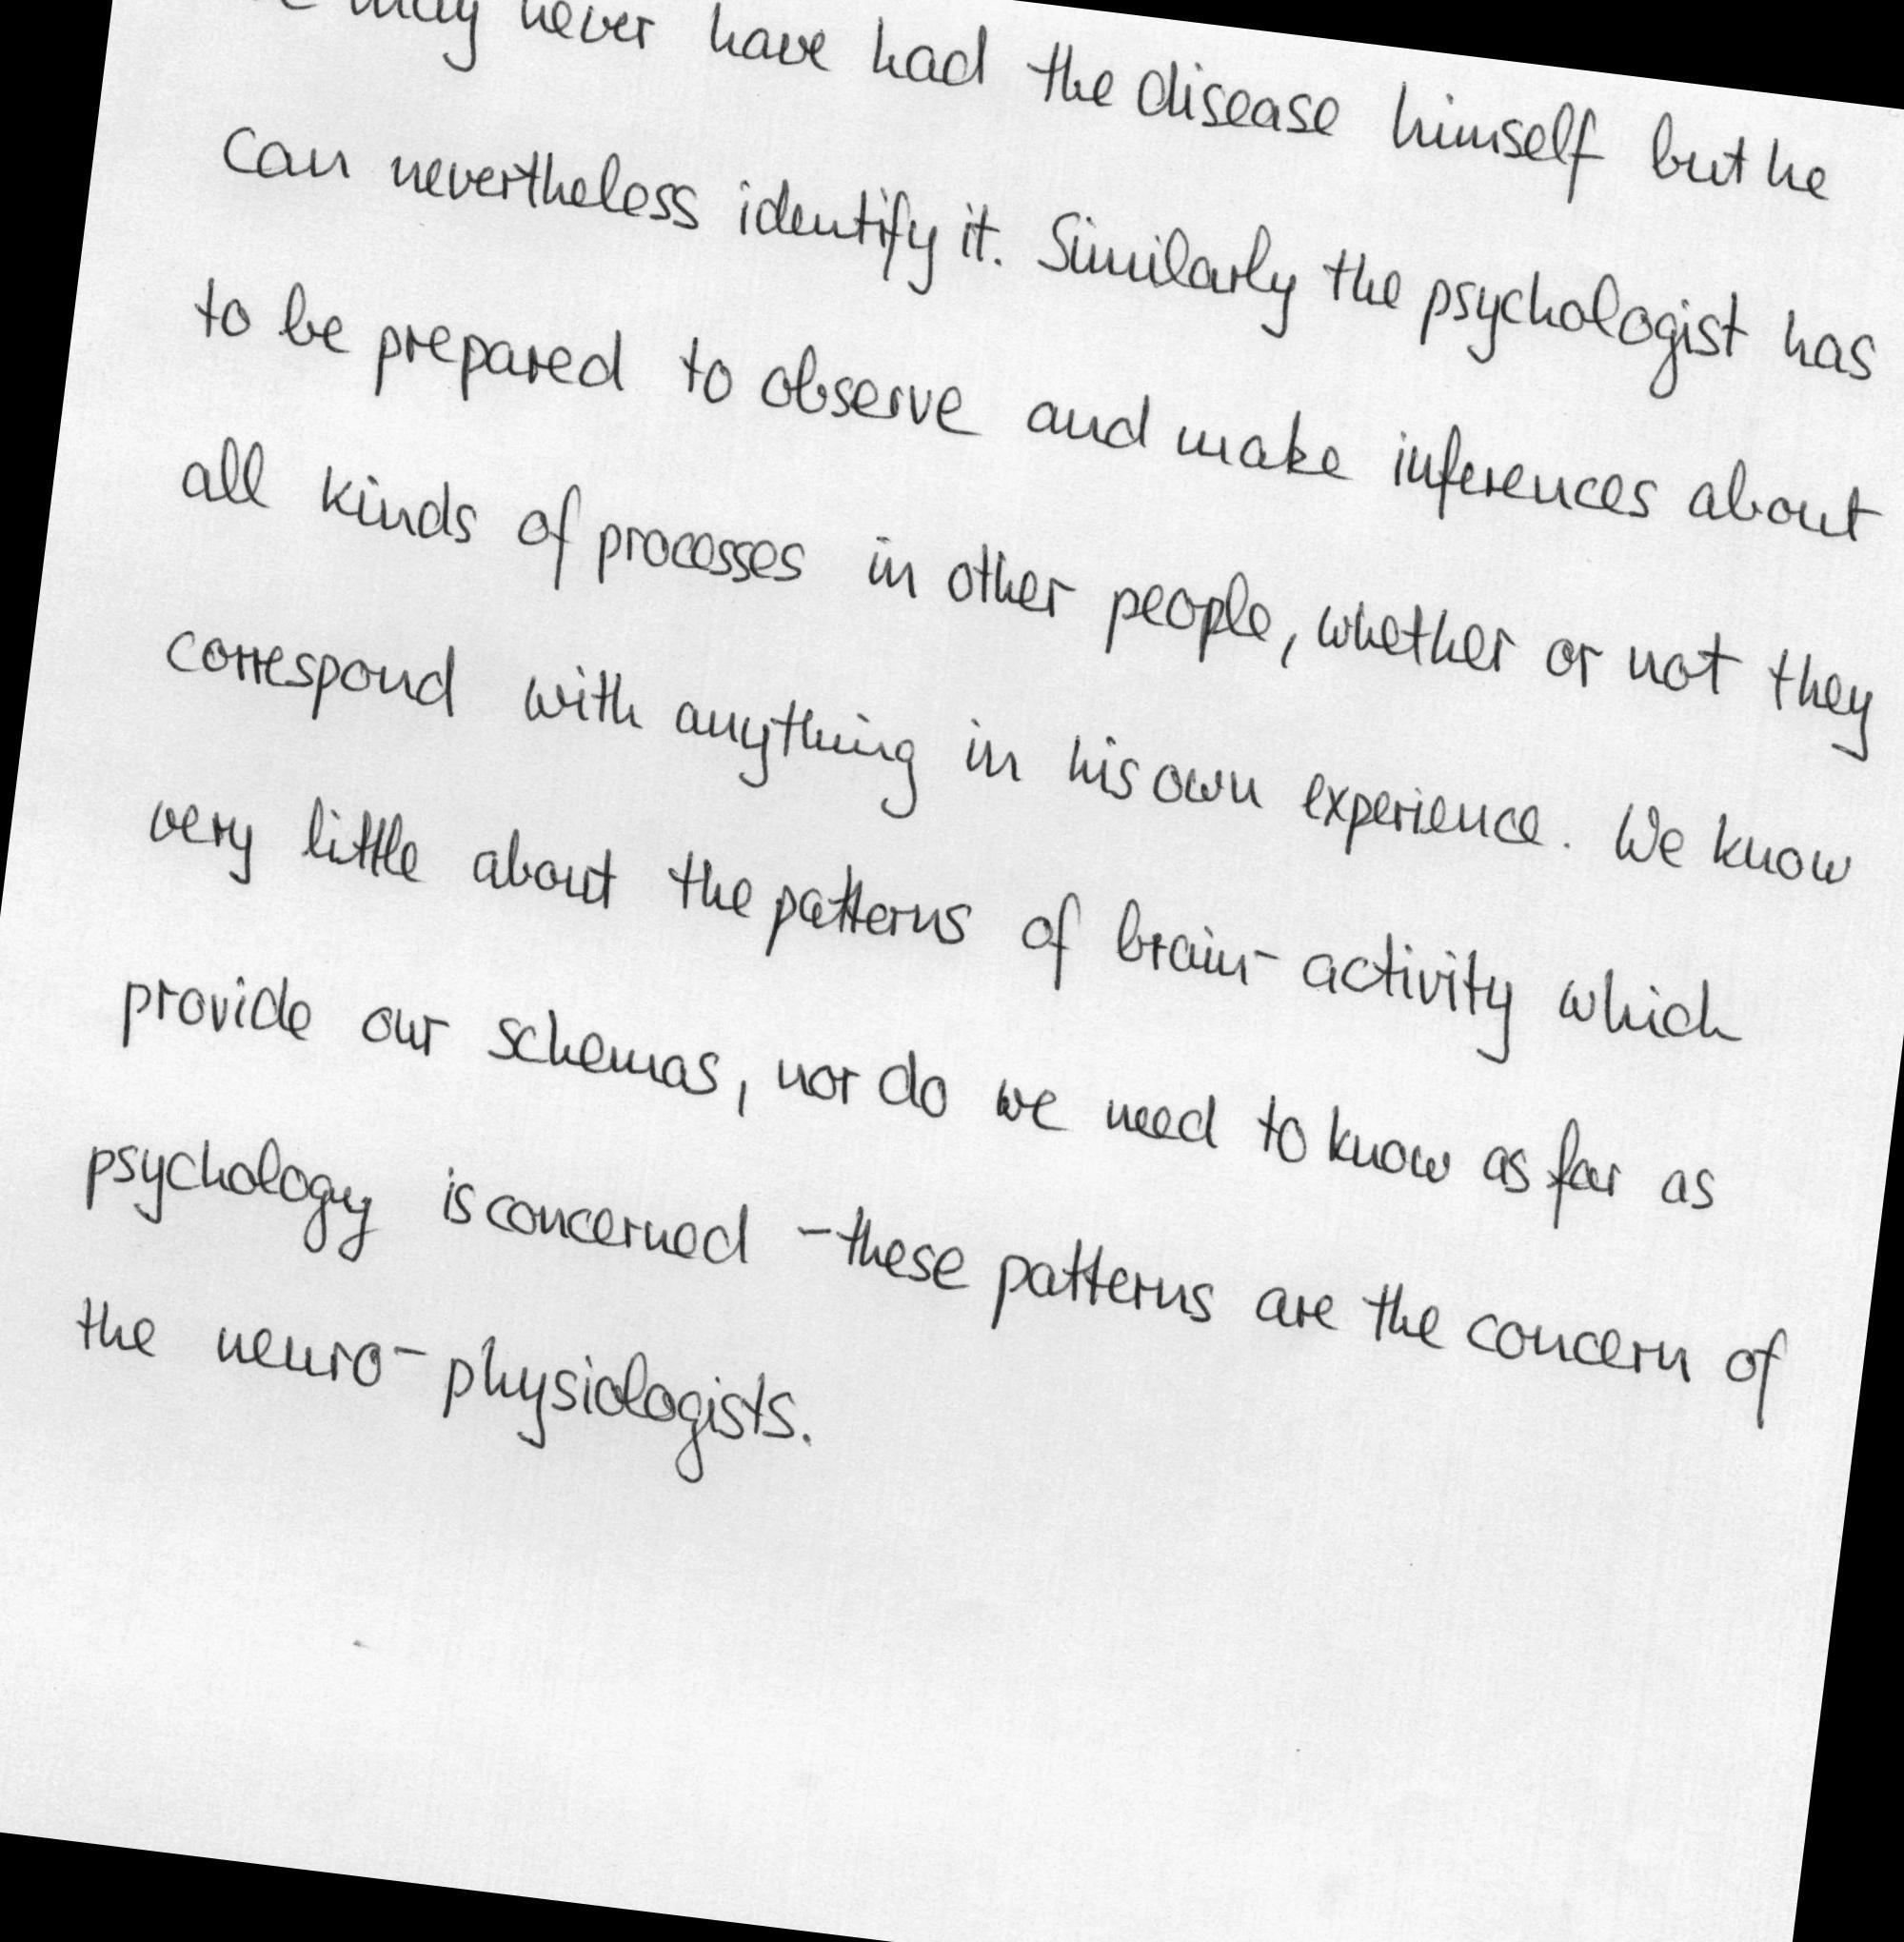 may never have had the disease himself but he
can nevertheless identify it. Similarly the psychologist has
to be prepared to observe and make inferences about
all kinds of processes in other people, whether or not they
correspond with anything in his own experience. We know
very little about the patterns of brain-activity which
provide our schemas, nor do we need to know as far as
psychology is concerned - these patterns are the concern of
the neuro-physiologists.